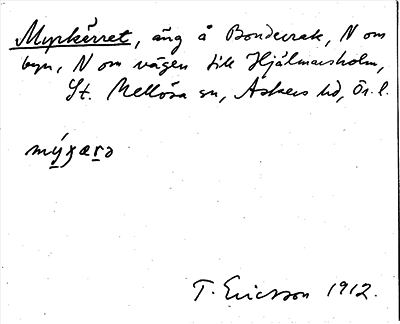 Myrkärret, äng å Bondevrak, N om
byn, N om vägen till Hjälmarsholm,
St. Mellösa sn, Askers hd, Ör. l.
mýʒærə
T. Ericsson 1912.